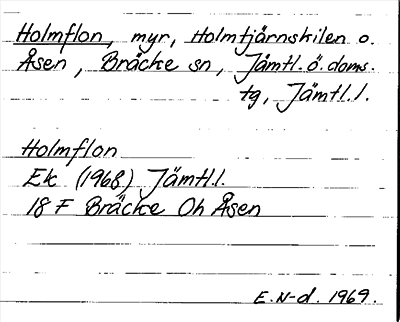 Holmflon, myr, Holmtjärnskilen o.
Åsen, Bräcke sn, Jämtl. ö. doms.
tg, Jämtl. l.
Holmflon
Ek (1968) Jämtl.l.
18 F Bräcke Oh Åsen
E. N-d. 1969.